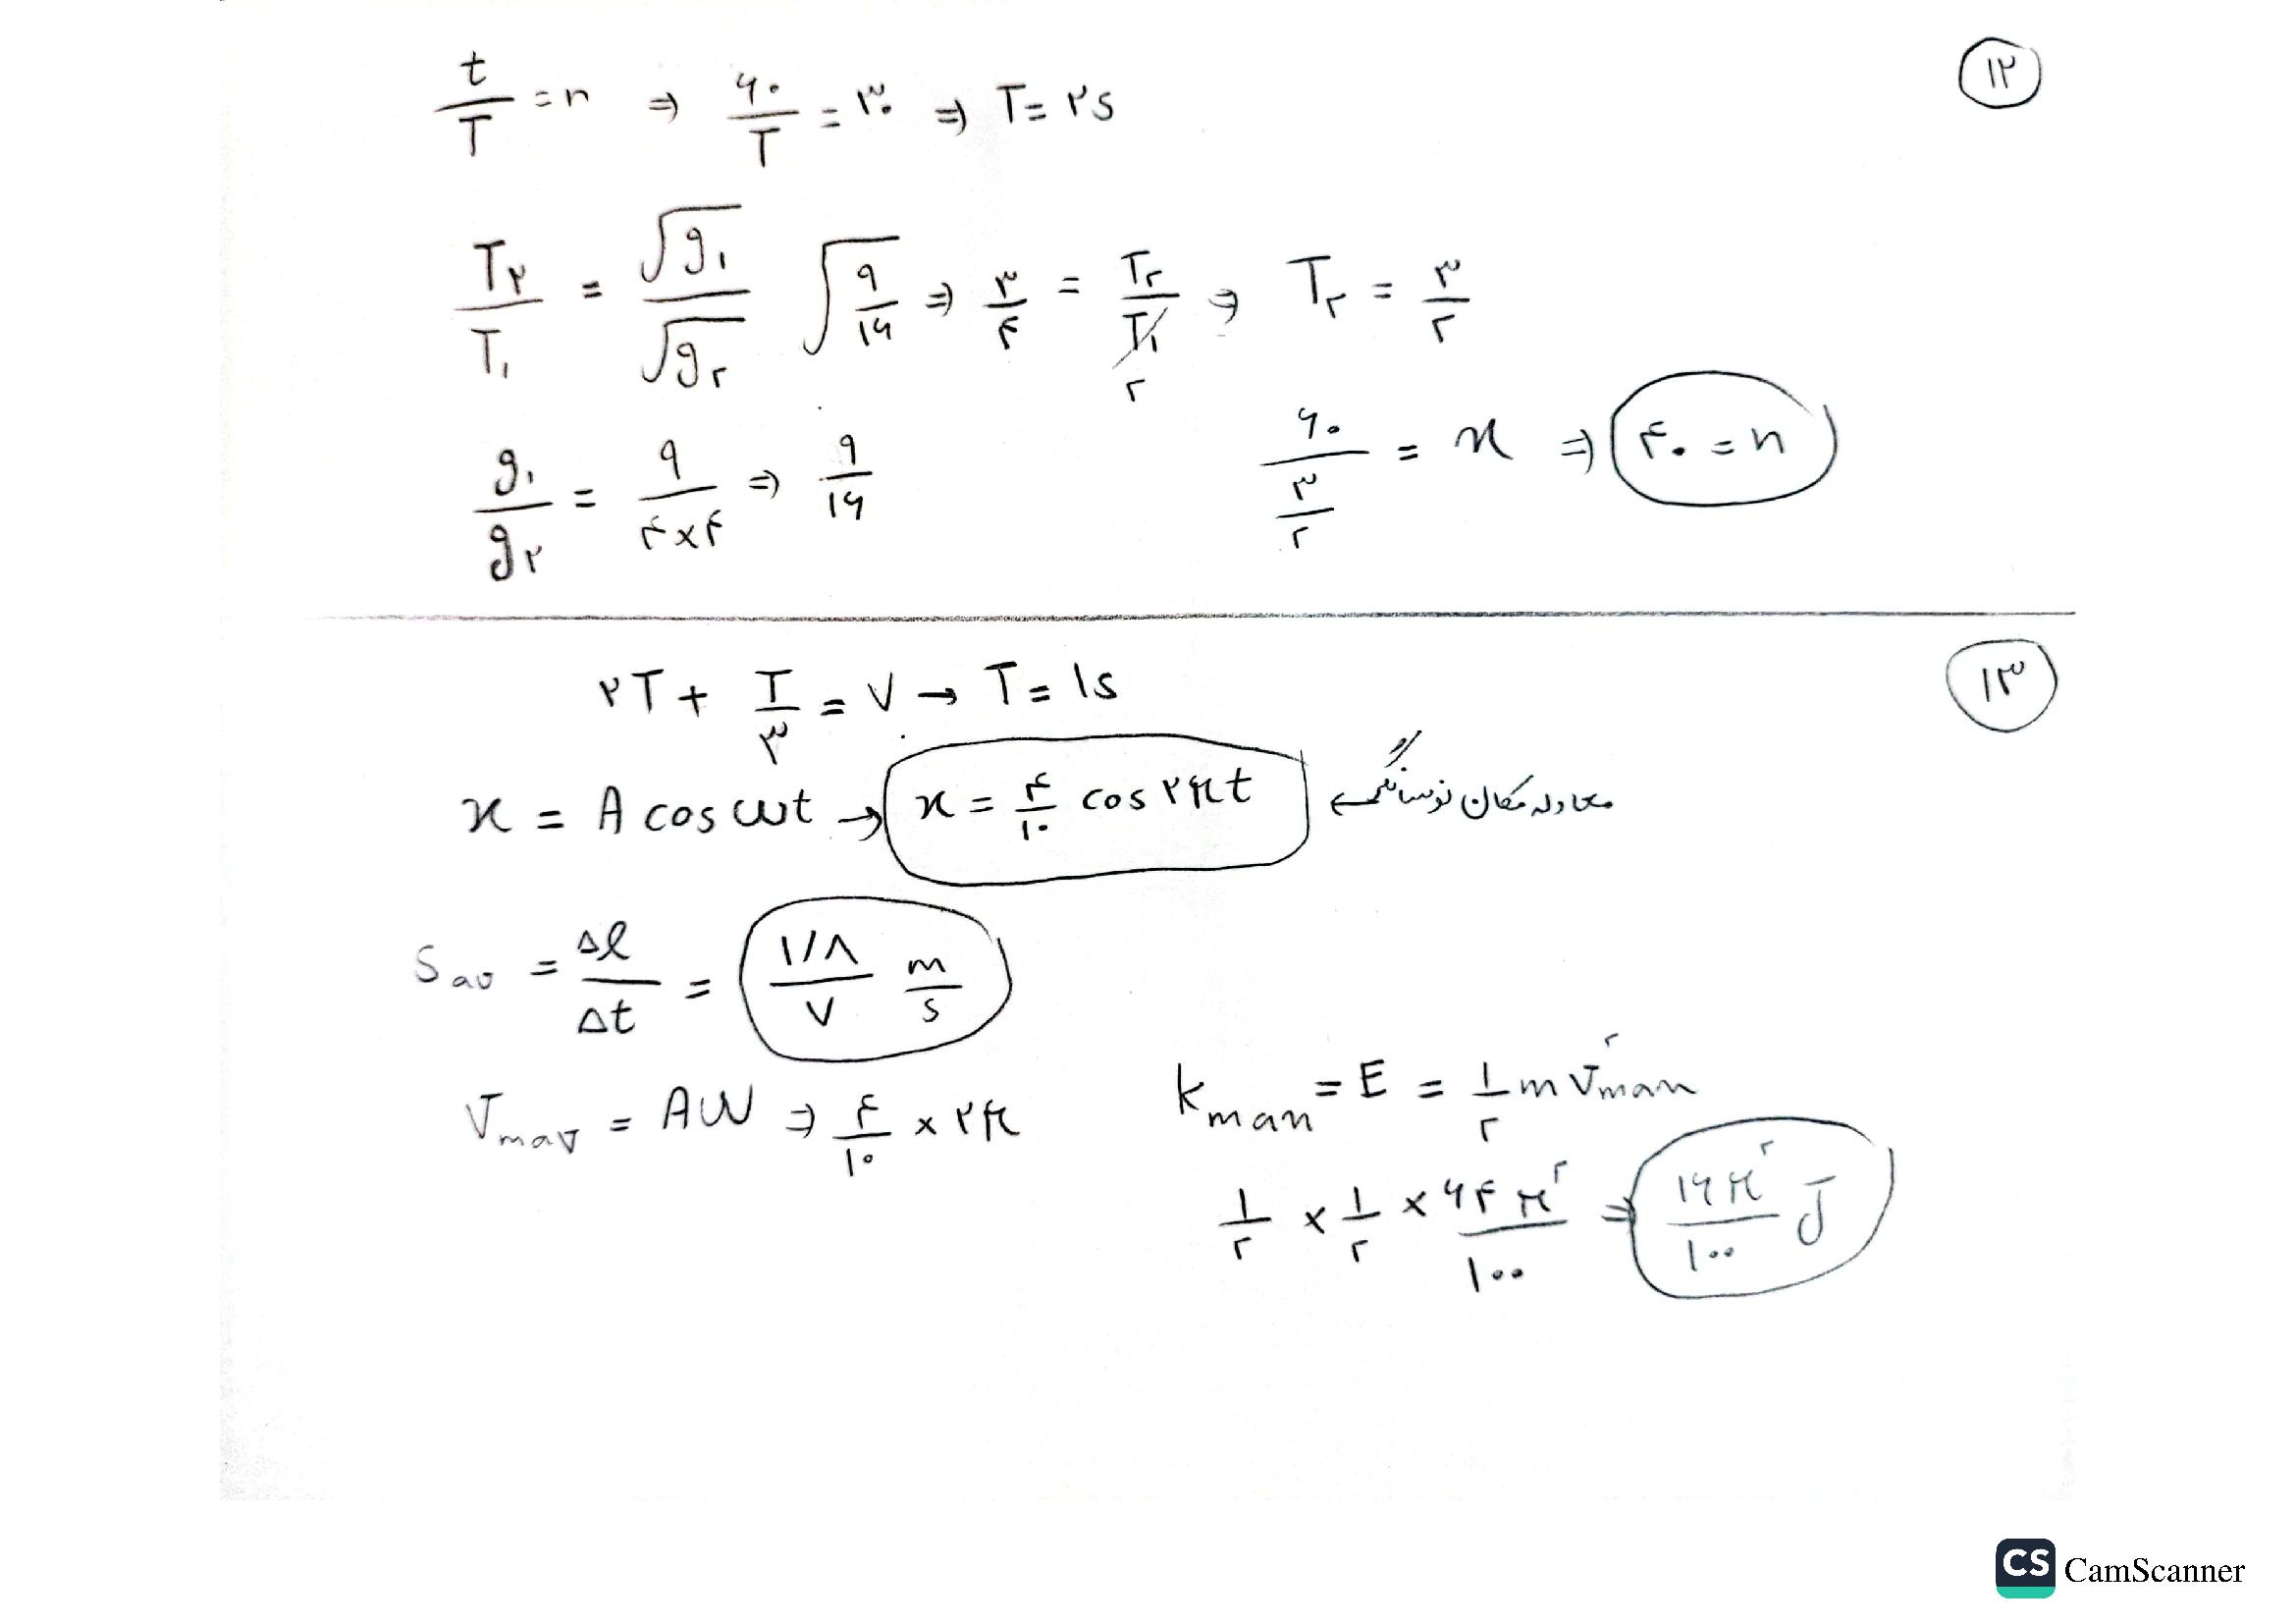 ۱۲
t/T = n ⇒ ۶۰/T = ۳۰ ⇒ T = ۲s
T۲/T۱ = √g۱/√g۲ √(۹/۱۶) ⇒ ۳/۴ = T۲/T۱ ۲ ⇒ T۲ = ۳/۲
g۱/g۲ = ۹/(۴×۴) ⇒ ۹/۱۶
۶۰/(۳/۲) = x ⇒ ۴۰ = n
۱۳
۲T + T/۳ = ۷ → T = ۱s
x = A cos ωt → x = ۴/۱۰ cos ۲πt ← معادله مکان نوسانگر
Sav = Δl/Δt = ۱/۸/۷ m/s
Vmax = Aω ⇒ ۴/۱۰ × ۲π
kmax = E = ۱/۲ m Vmax²
۱/۲ × ۱/۲ × ۶۴π²/۱۰۰ ⇒ ۱۶π²/۱۰۰ J
CS CamScanner